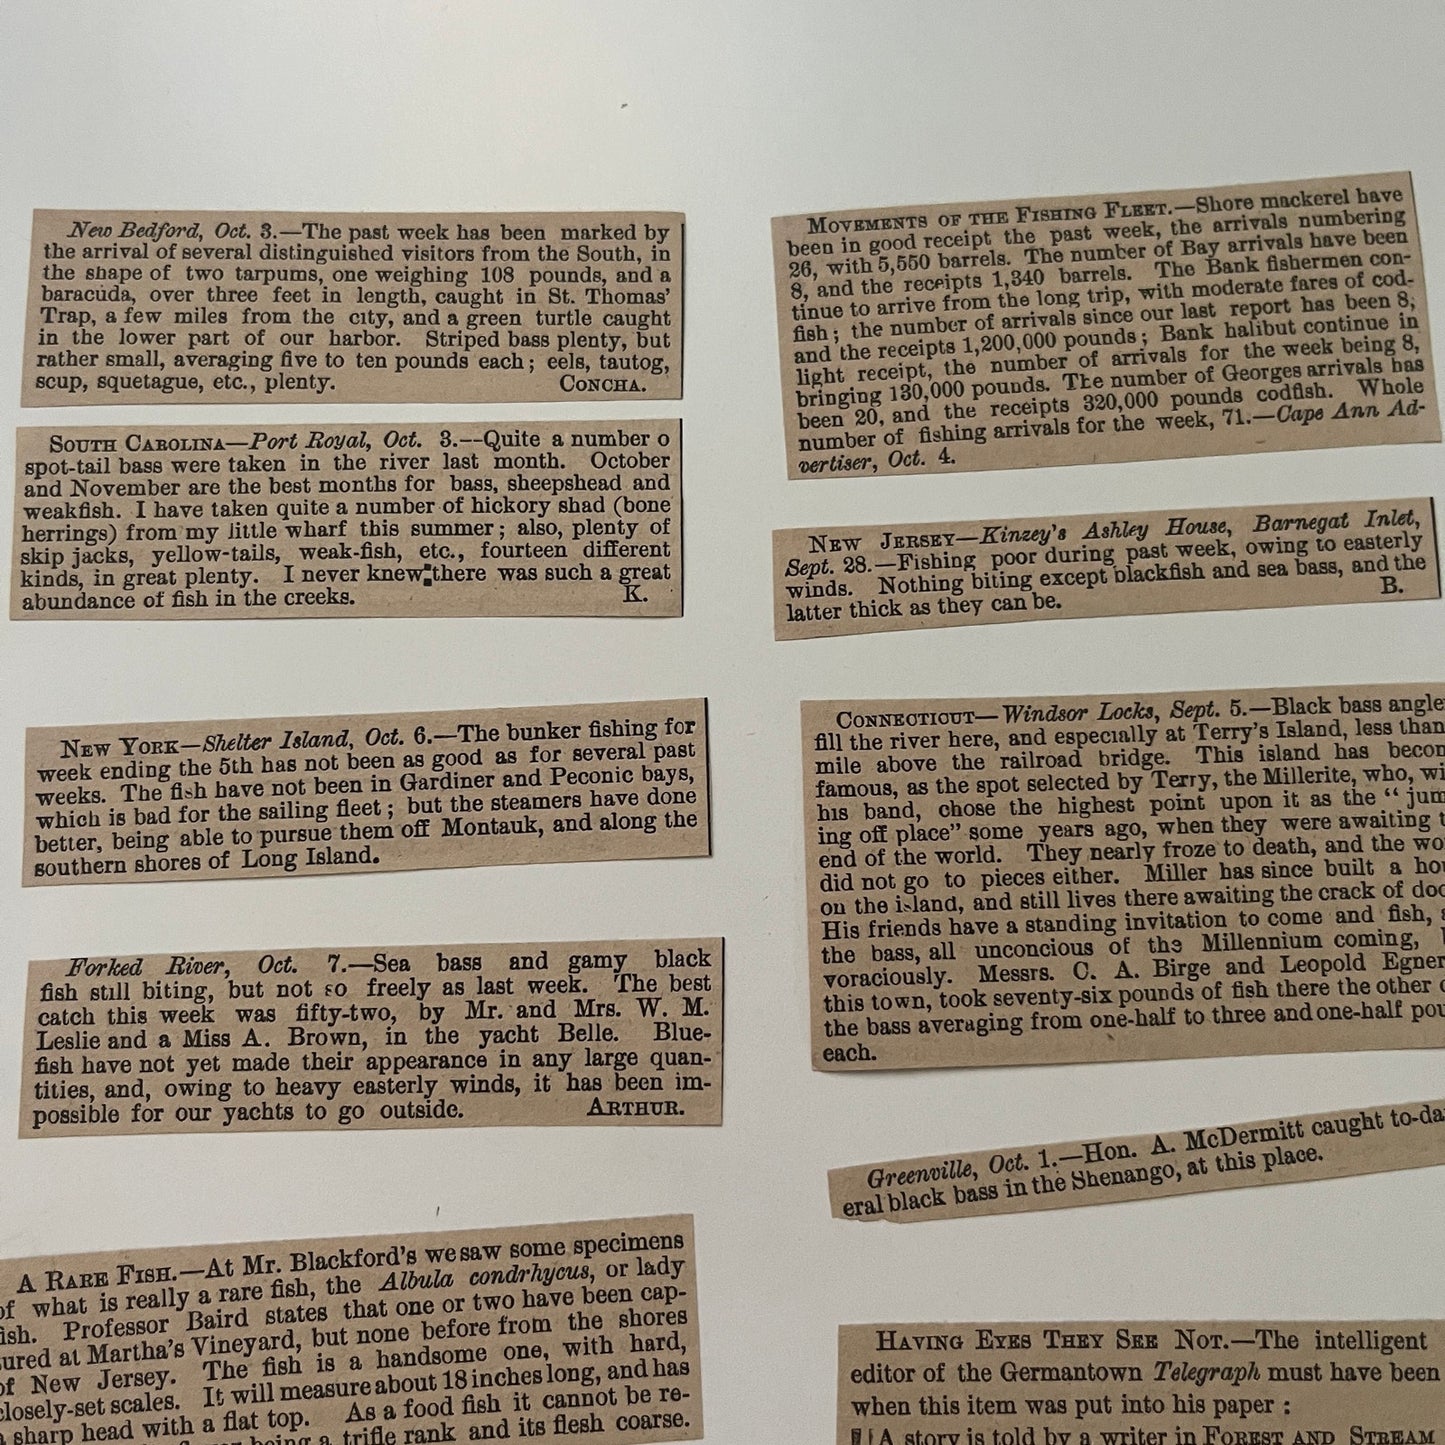 New Bedford, Oct. 3.—The past week has been marked by
the arrival of several distinguished visitors from the South, in
the shape of two tarpums, one weighing 108 pounds, and a
baracuda, over three feet in length, caught in St. Thomas'
Trap, a few miles from the city, and a green turtle caught
in the lower part of our harbor. Striped bass plenty, but
rather small, averaging five to ten pounds each; eels, tautog,
scup, squetague, etc., plenty. CONCHA.
SOUTH CAROLINA—Port Royal, Oct. 3.--Quite a number o
spot-tail bass were taken in the river last month. October
and November are the best months for bass, sheepshead and
weakfish. I have taken quite a number of hickory shad (bone
herrings) from my little wharf this summer; also, plenty of
skip jacks, yellow-tails, weak-fish, etc., fourteen different
kinds, in great plenty. I never knew there was such a great
abundance of fish in the creeks. K.
NEW YORK—Shelter Island, Oct. 6.—The bunker fishing for
week ending the 5th has not been as good as for several past
weeks. The fish have not been in Gardiner and Peconic bays,
which is bad for the sailing fleet; but the steamers have done
better, being able to pursue them off Montauk, and along the
southern shores of Long Island.
Forked River, Oct. 7.—Sea bass and gamy black
fish still biting, but not so freely as last week. The best
catch this week was fifty-two, by Mr. and Mrs. W. M.
Leslie and a Miss A. Brown, in the yacht Belle. Blue-
fish have not yet made their appearance in any large quan-
tities, and, owing to heavy easterly winds, it has been im-
possible for our yachts to go outside. ARTHUR.
A RARE FISH.—At Mr. Blackford's we saw some specimens
of what is really a rare fish, the Albula condrhycus, or lady
fish. Professor Baird states that one or two have been cap-
ured at Martha's Vineyard, but none before from the shores
of New Jersey. The fish is a handsome one, with hard,
closely-set scales. It will measure about 18 inches long, and has
a sharp head with a flat top. As a food fish it cannot be re-
being a trifle rank and its flesh coarse.
MOVEMENTS OF THE FISHING FLEET.—Shore mackerel have
been in good receipt the past week, the arrivals numbering
26, with 5,550 barrels. The number of Bay arrivals have been
8, and the receipts 1,340 barrels. The Bank fishermen con-
tinue to arrive from the long trip, with moderate fares of cod-
fish; the number of arrivals since our last report has been 8,
and the receipts 1,200,000 pounds; Bank halibut continue in
light receipt, the number of arrivals for the week being 8,
bringing 130,000 pounds. The number of Georges arrivals has
been 20, and the receipts 320,000 pounds codfish. Whole
number of fishing arrivals for the week, 71.—Cape Ann Ad-
vertiser, Oct. 4.
NEW JERSEY—Kinzey's Ashley House, Barnegat Inlet,
Sept. 28.—Fishing poor during past week, owing to easterly
winds. Nothing biting except blackfish and sea bass, and the
latter thick as they can be. B.
CONNECTICUT—Windsor Locks, Sept. 5.—Black bass angle
fill the river here, and especially at Terry's Island, less than
mile above the railroad bridge. This island has becom
famous, as the spot selected by Terry, the Millerite, who, wi
his band, chose the highest point upon it as the "jum
ing off place" some years ago, when they were awaiting t
end of the world. They nearly froze to death, and the wo
did not go to pieces either. Miller has since built a hou
on the island, and still lives there awaiting the crack of doo
His friends have a standing invitation to come and fish, a
the bass, all unconcious of the Millennium coming,
voraciously. Messrs. C. A. Birge and Leopold Egner
this town, took seventy-six pounds of fish there the other
the bass averaging from one-half to three and one-half pou
each.
Greenville, Oct. 1.—Hon. A. McDermitt caught to-da
eral black bass in the Shenango, at this place.
HAVING EYES THEY SEE NOT.—The intelligent
editor of the Germantown Telegraph must have been
when this item was put into his paper:
A story is told by a writer in FOREST AND STREAM